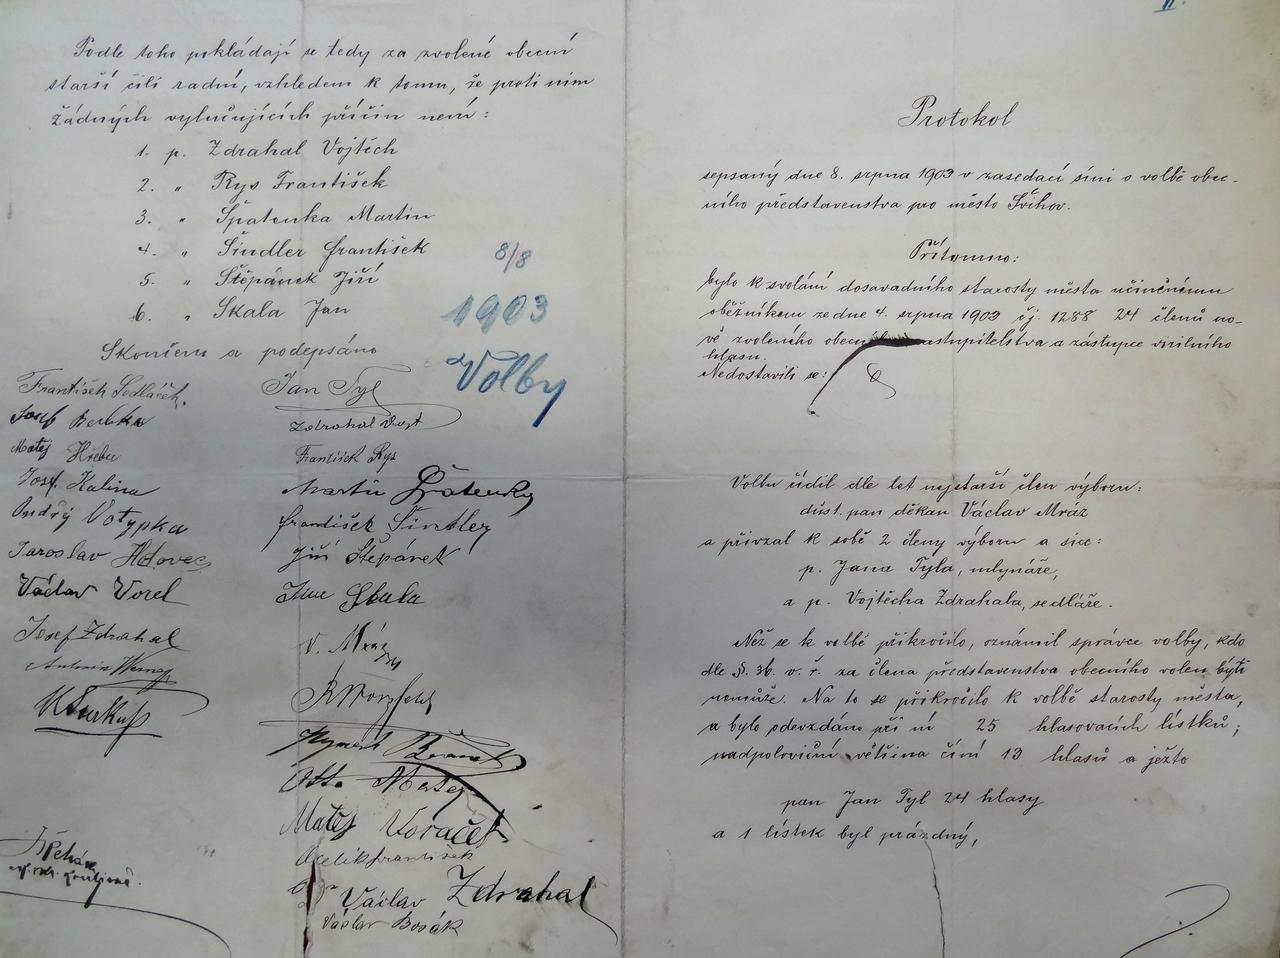 Podle toho pokládají se tedy za zvolené obecní
starší čili radní, vzhledem k tomu, že proti nim
žádných vylučujících příčin není:
1. p. Zdrahal Vojtěch
2. " Rys František
3. " Špatenka Martin
4. " Šindler František
5. " Štěpánek Jiří
6. " Skala Jan
8/8
1903
Volby
Skončeno a podepsáno
František Sedláček.
Josef Beubka
Matěj
Josef Kalina
Ondřej Votypka
Jaroslav
Václav Vorel
Josef Zdrahal
Antonín
Jan Tyl
Zdrahal Vojt
František Rys
Martin Špatenka
František Šindler
Jiří Štěpánek
Jan Skala
V. Mráz
Otto
Matěj Voráček
František
Václav Zdrahal
Václav Bosák
II.
Protokol
sepsaný dne 8. srpna 1903 v zasedací síni o volbě obec-
ního představenstva pro město Švihov.
Přítomno:
bylo k svolání dosavadního starosty města učiněnému
oběžníkem ze dne 4. srpna 1903 čj. 1288 24 členů no-
vě zvoleného obecního zastupitelstva a zástupce virilního
hlasu.
Nedostavili se:
Volbu řídil dle let nejstarší člen výboru:
důst. pan děkan Václav Mráz
a přivzal k sobě 2 členy výboru a sice:
p. Jana Tyla, mlynáře,
a p. Vojtěcha Zdrahala, sedláře.
Než se k volbě přikročilo, oznámil správce volby, kdo
dle §. 36. v. ř. za člena představenstva obecního volen býti
nemůže. Na to se přikročilo k volbě starosty města,
a bylo odevzdáno při ní 25 hlasovacích lístků;
nadpoloviční většina činí 13 hlasů a ježto
pan Jan Tyl 24 hlasy
a 1 lístek byl prázdný,